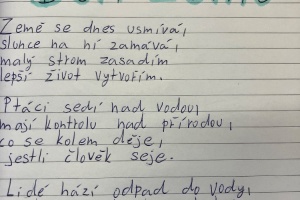 Země se dnes usmívá,
slunce na ní zamává,
malý strom zasadím
lepší život vytvořím.
Ptáci sedí nad vodou,
mají kontrolu nad přírodou,
co se kolem děje,
jestli člověk seje.
Lidé hází odpad do vody,